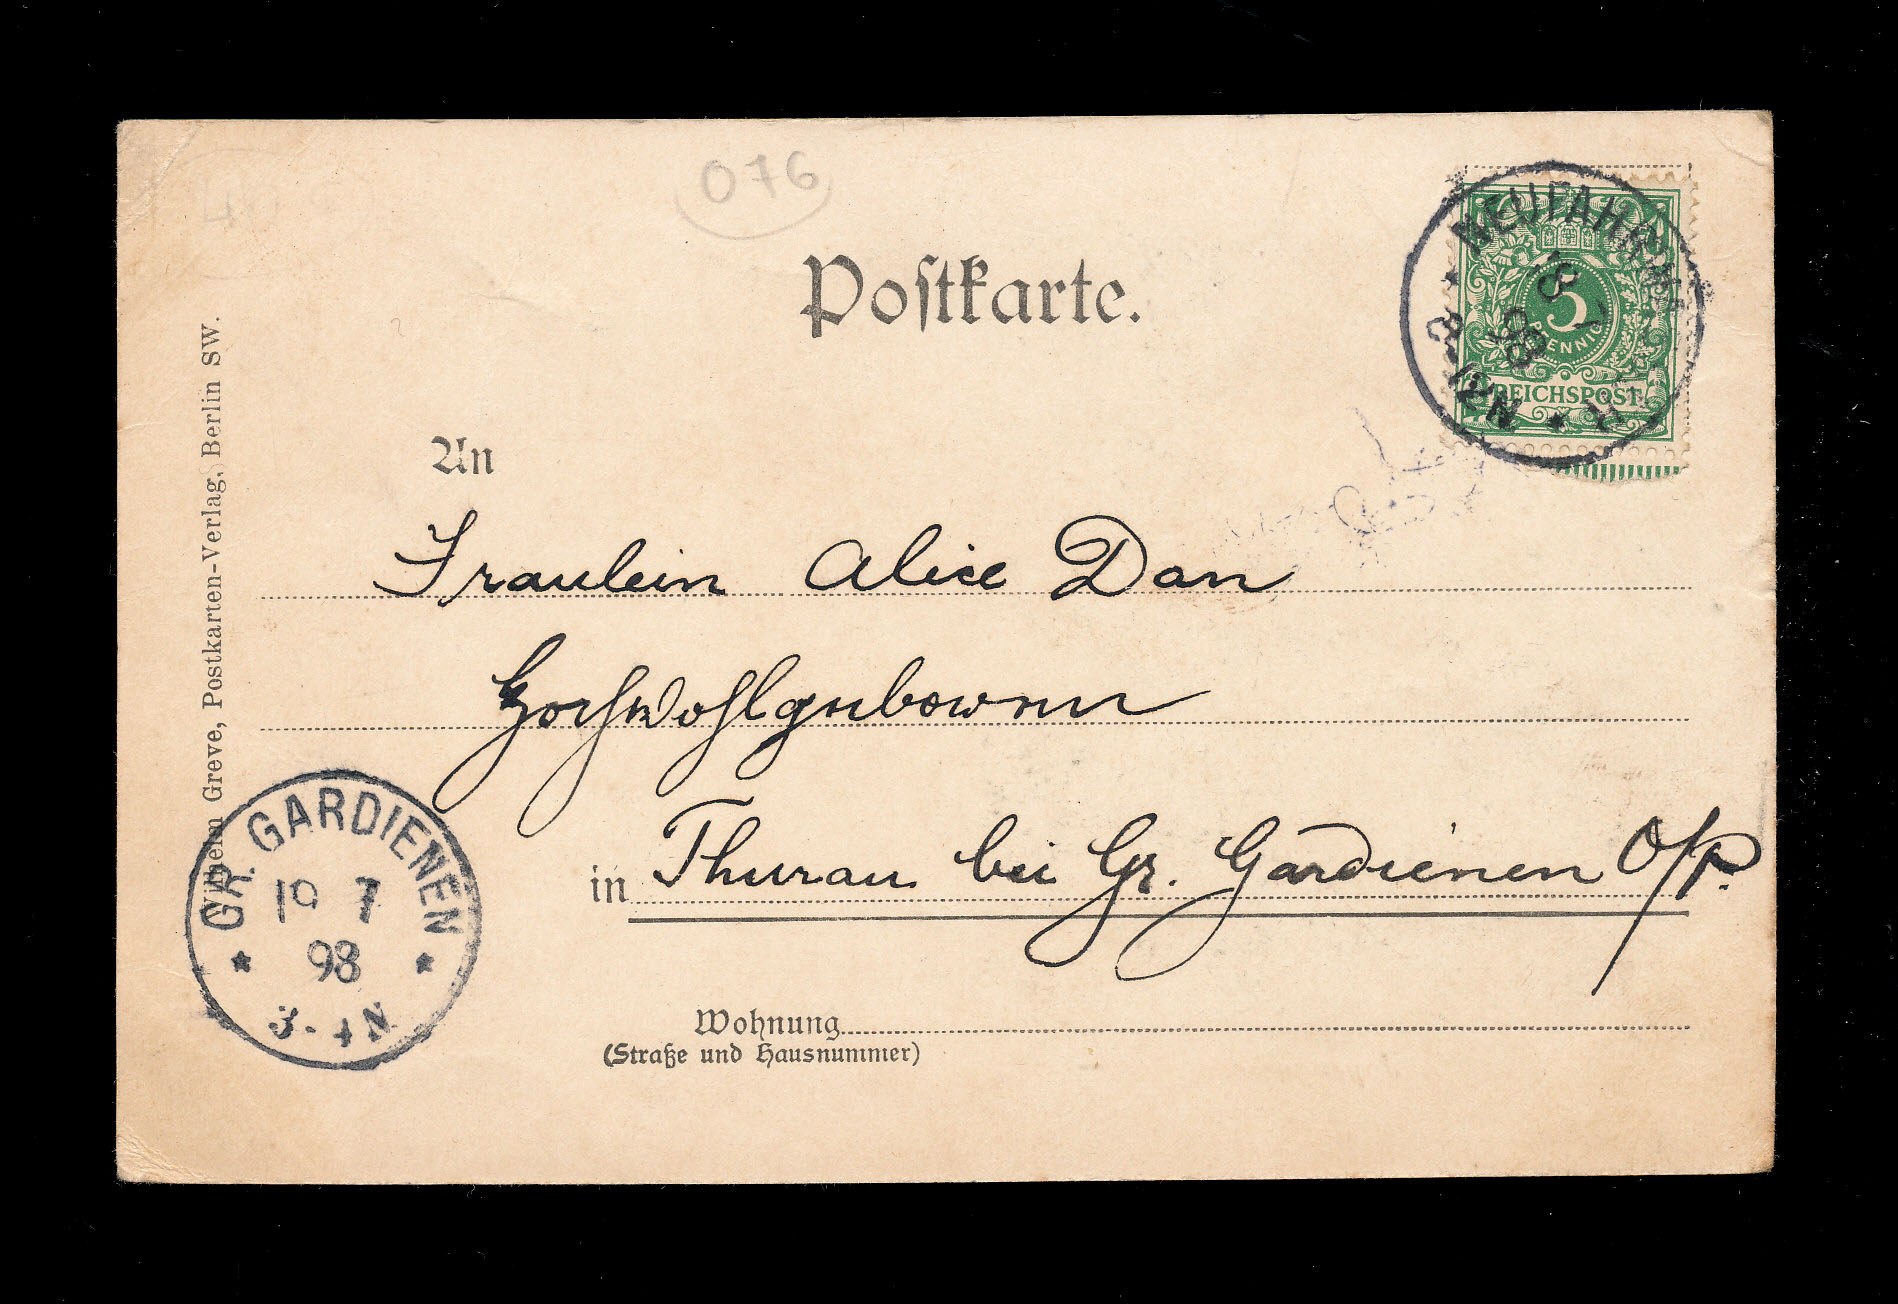 076
Postkarte.
NEUFAHRWASSER
18 7
98
8-12N
5
PFENNIG
REICHSPOST
An
Fräulein Alice Dan
Hochwohlgeboren
in Thurau bei Gr. Gardienen O/Pr.
Wohnung
(Straße und Hausnummer)
GR. GARDIENEN
19 7
98
3-4N
Wilhelm Greve, Postkarten-Verlag, Berlin SW.